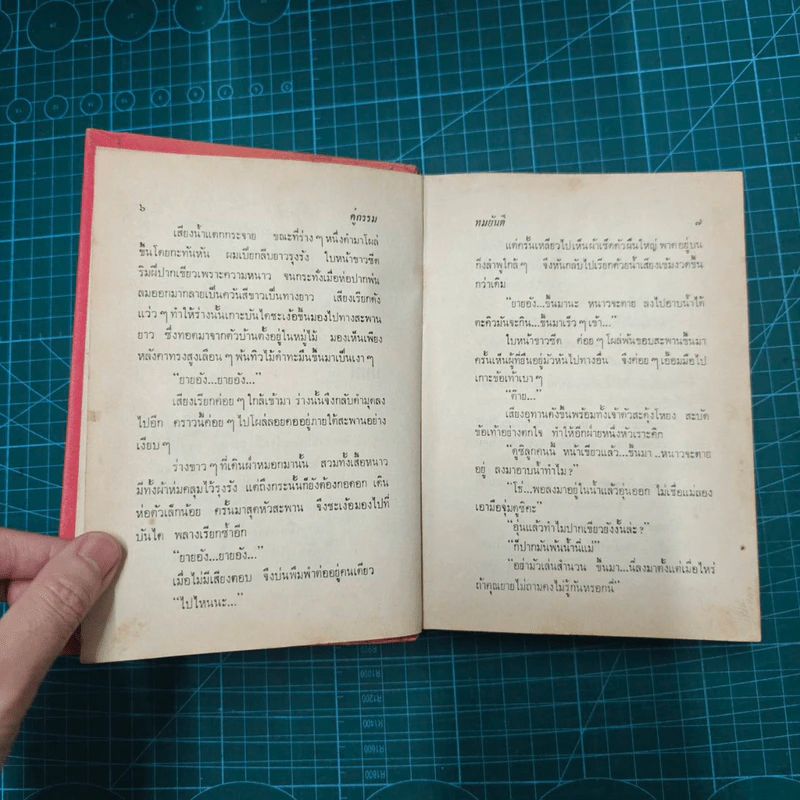 ๖
คู่กรรม
เสียงน้ำแตกกระจาย ขณะที่ร่าง ๆ หนึ่งดำมาโผล่
ขึ้นโดยกะทันหัน ผมเปียกลีบยาวรุงรัง ใบหน้าขาวซีด
ริมฝีปากเขียวเพราะความหนาว จนกระทั่งเมื่อห่อปากพ่น
ลมออกมากลายเป็นควันสีขาวเป็นทางยาว เสียงเรียกดัง
แว่ว ๆ ทำให้ร่างนั้นเกาะบันไดชะเง้อขึ้นมองไปทางสะพาน
ยาว ซึ่งทอดมาจากตัวบ้านตั้งอยู่ในหมู่ไม้ มองเห็นเพียง
หลังคาทรงสูงเลือน ๆ พ้นทิวไม้ดำทะมึนขึ้นมาเป็นเงา ๆ
“ยายอัง...ยายอัง...”
เสียงเรียกค่อย ๆ ใกล้เข้ามา ร่างนั้นจึงกลับดำมุดลง
ไปอีก คราวนี้ค่อย ๆ ไปโผล่ลอยคออยู่ภายใต้สะพานอย่าง
เงียบ ๆ
ร่างขาว ๆ ที่เดินฝ่าหมอกมานั้น สวมทั้งเสื้อหนาว
มีทั้งผ้าห่มคลุมไว้รุงรัง แต่ถึงกระนั้นก็ยังต้องกอดอก เดิน
ห่อตัวเล็กน้อย ครั้นมาสุดหัวสะพาน จึงชะเง้อมองไปที่
บันได พลางเรียกซ้ำอีก
“ยายอัง...ยายอัง...”
เมื่อไม่มีเสียงตอบ จึงบ่นพึมพำต่ออยู่คนเดียว
“ไปไหนนะ...”
ทมยันตี
๗
แต่ครั้นเหลียวไปเห็นผ้าเช็ดตัวผืนใหญ่ พาดอยู่บน
กิ่งลำพูใกล้ ๆ จึงหันกลับไปเรียกด้วยน้ำเสียงเข้มงวดขึ้น
กว่าเดิม
“ยายอัง...ขึ้นมานะ หนาวจะตาย ลงไปอาบน้ำได้
ตะคิวมันจะกิน...ขึ้นมาเร็ว ๆ เข้า...”
ใบหน้าขาวซีด ค่อย ๆ โผล่พ้นขอบสะพานขึ้นมา
ครั้นเห็นผู้ที่ยืนอยู่มัวหันไปทางอื่น จึงค่อย ๆ เอื้อมมือไป
เกาะข้อเท้าเบา ๆ
“ต๊าย...”
เสียงอุทานดังขึ้นพร้อมทั้งเจ้าตัวสะดุ้งโหยง สะบัด
ข้อเท้าอย่างตกใจ ทำให้อีกฝ่ายหนึ่งหัวเราะคิก
“ดูซิลูกคนนี้ หน้าเขียวแล้ว...ขึ้นมา..หนาวจะตาย
อยู่ ลงมาอาบน้ำทำไม?”
“โธ่...พอลงมาอยู่ในน้ำแล้วอุ่นออก ไม่เชื่อแม่ลอง
เอามือจุ่มดูซิคะ”
“อุ่นแล้วทำไมปากเขียวยังงั้นล่ะ?”
“ก็ปากมันพ้นน้ำนี่แม่”
“อย่ามัวเล่นสำนวน ขึ้นมา...นี่ลงมาตั้งแต่เมื่อไหร่
ถ้าคุณยายไม่ถามคงไม่รู้กันหรอกนี่”
R1000
R1200
R1400
R1600
R1800